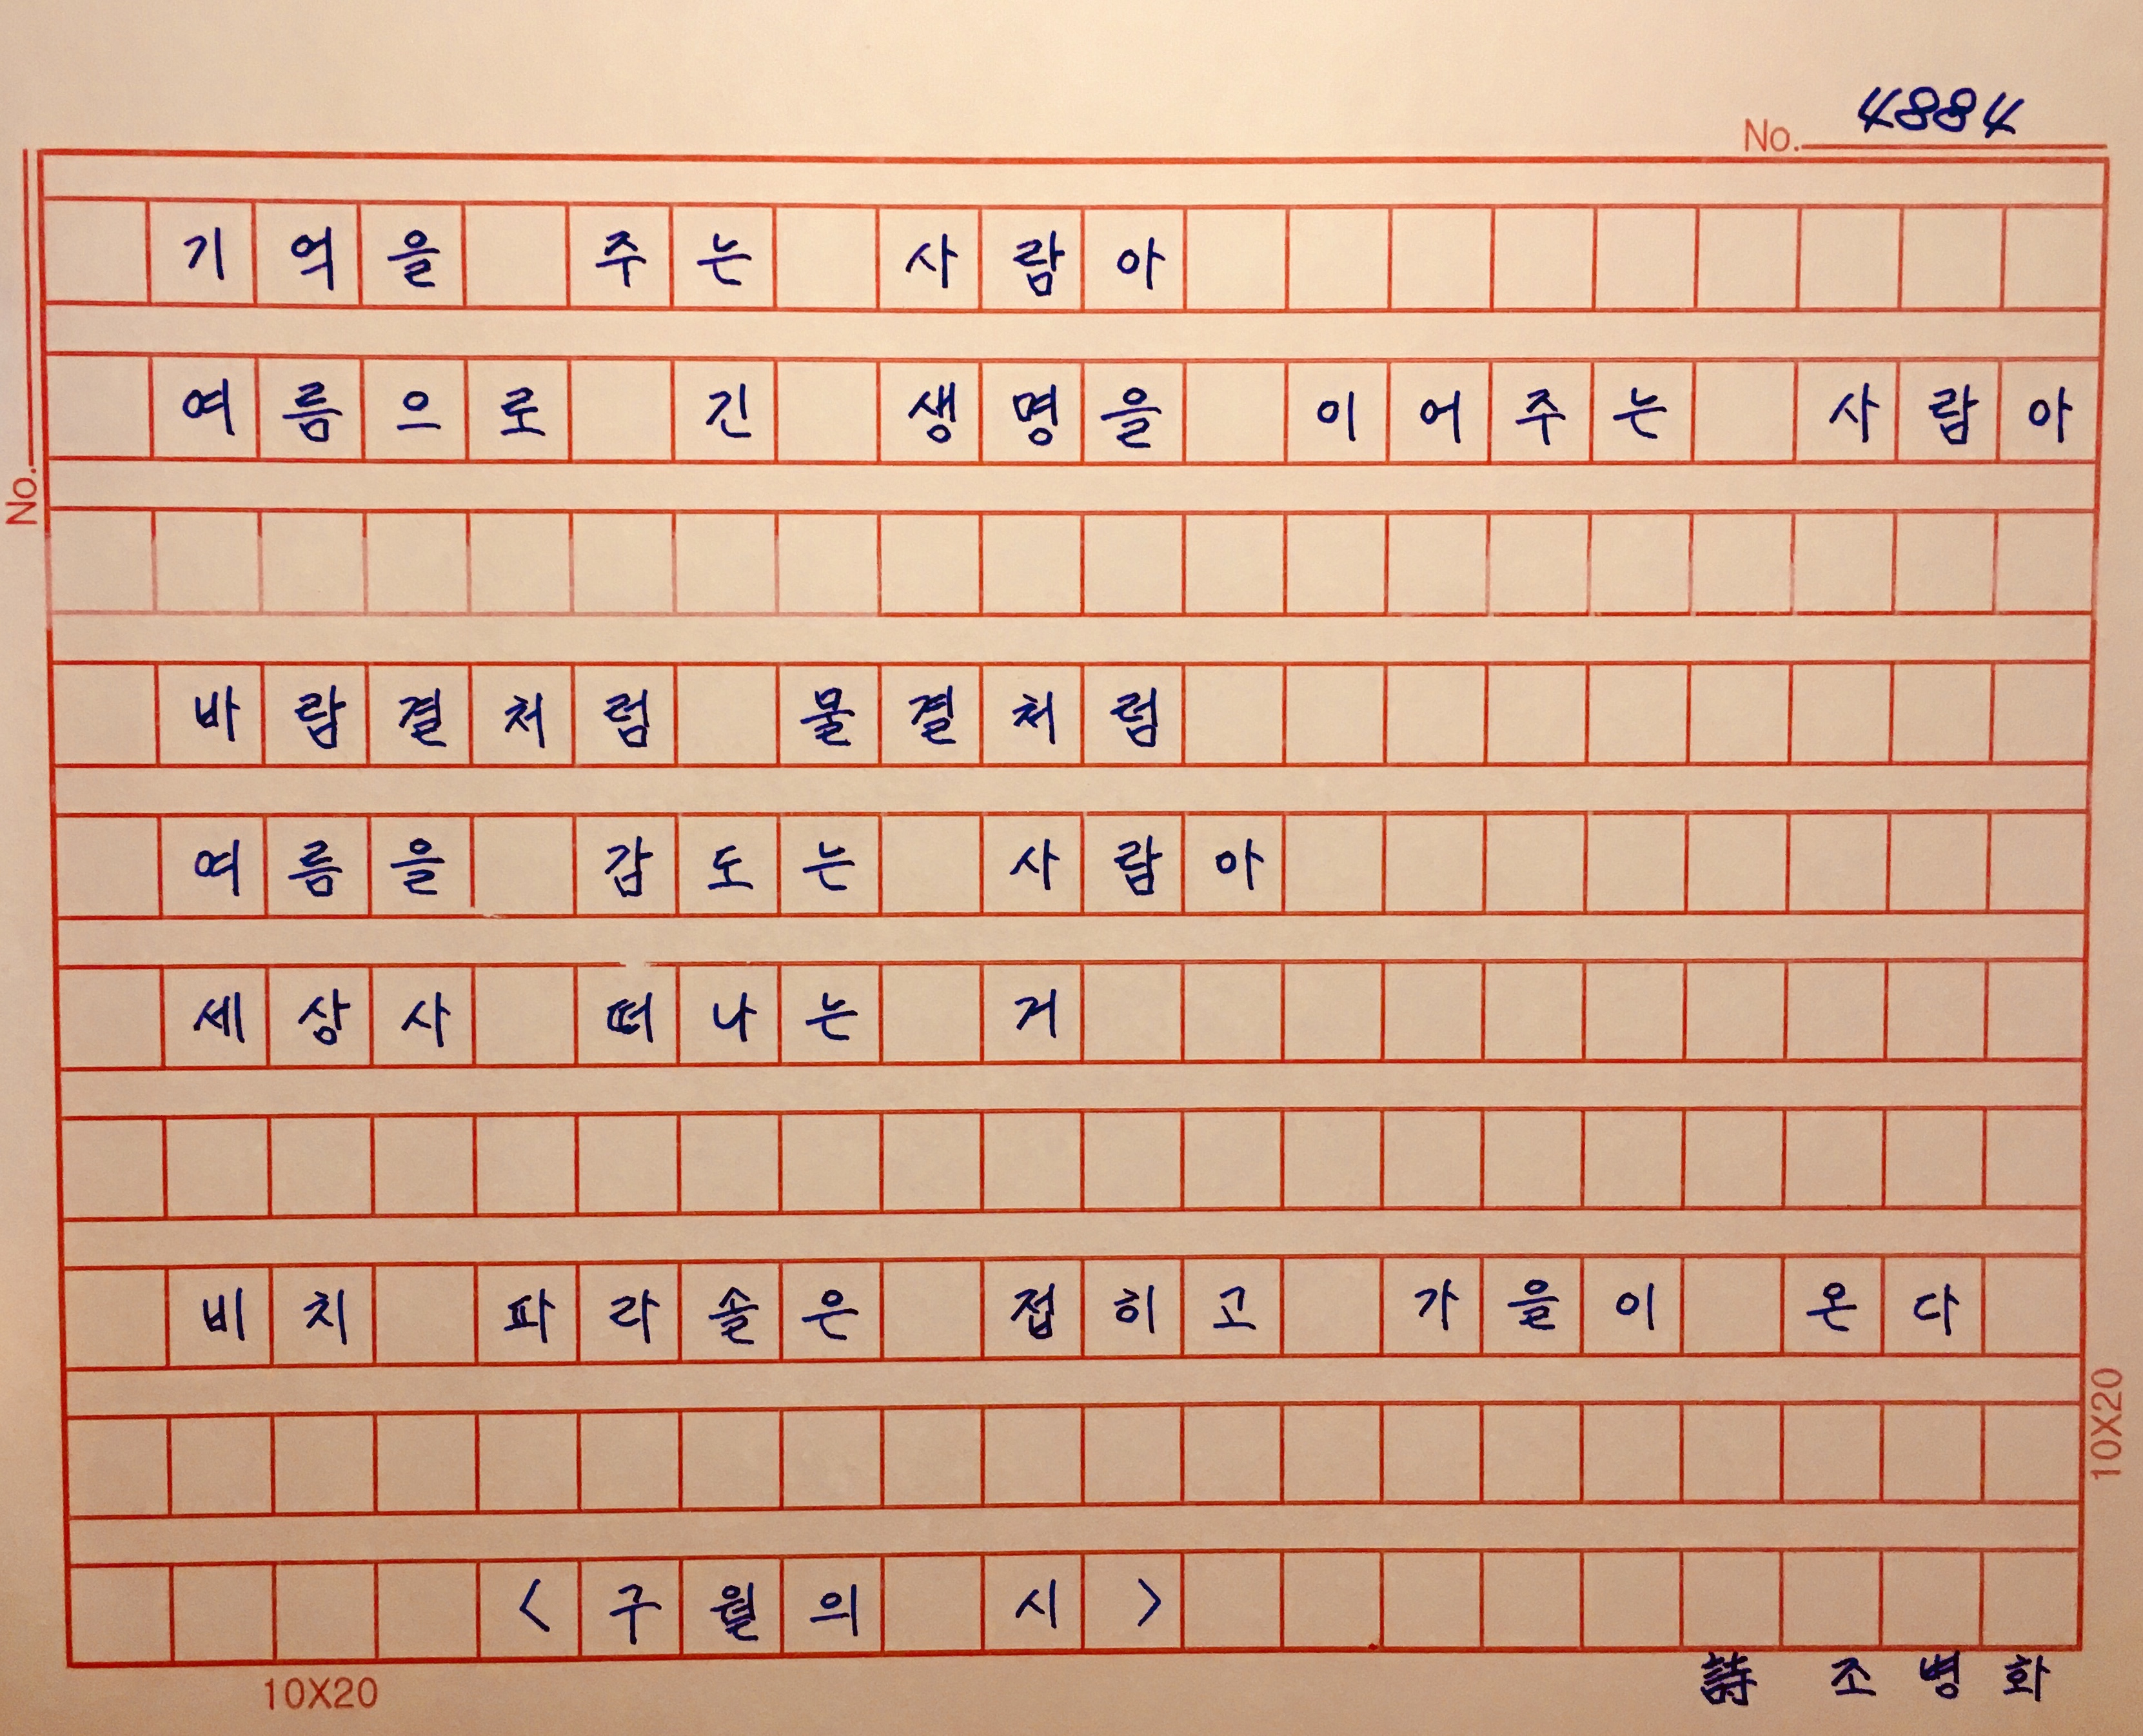 No. 4884
기억을 주는 사람아
여름으로 긴 생명을 이어주는 사람아
No.
바람결처럼 물결처럼
여름을 감도는 사람아
세상사 떠나는 거
비치 파라솔은 접히고 가을이 온다
10X20
<구월의 시>
詩 조병화
10X20